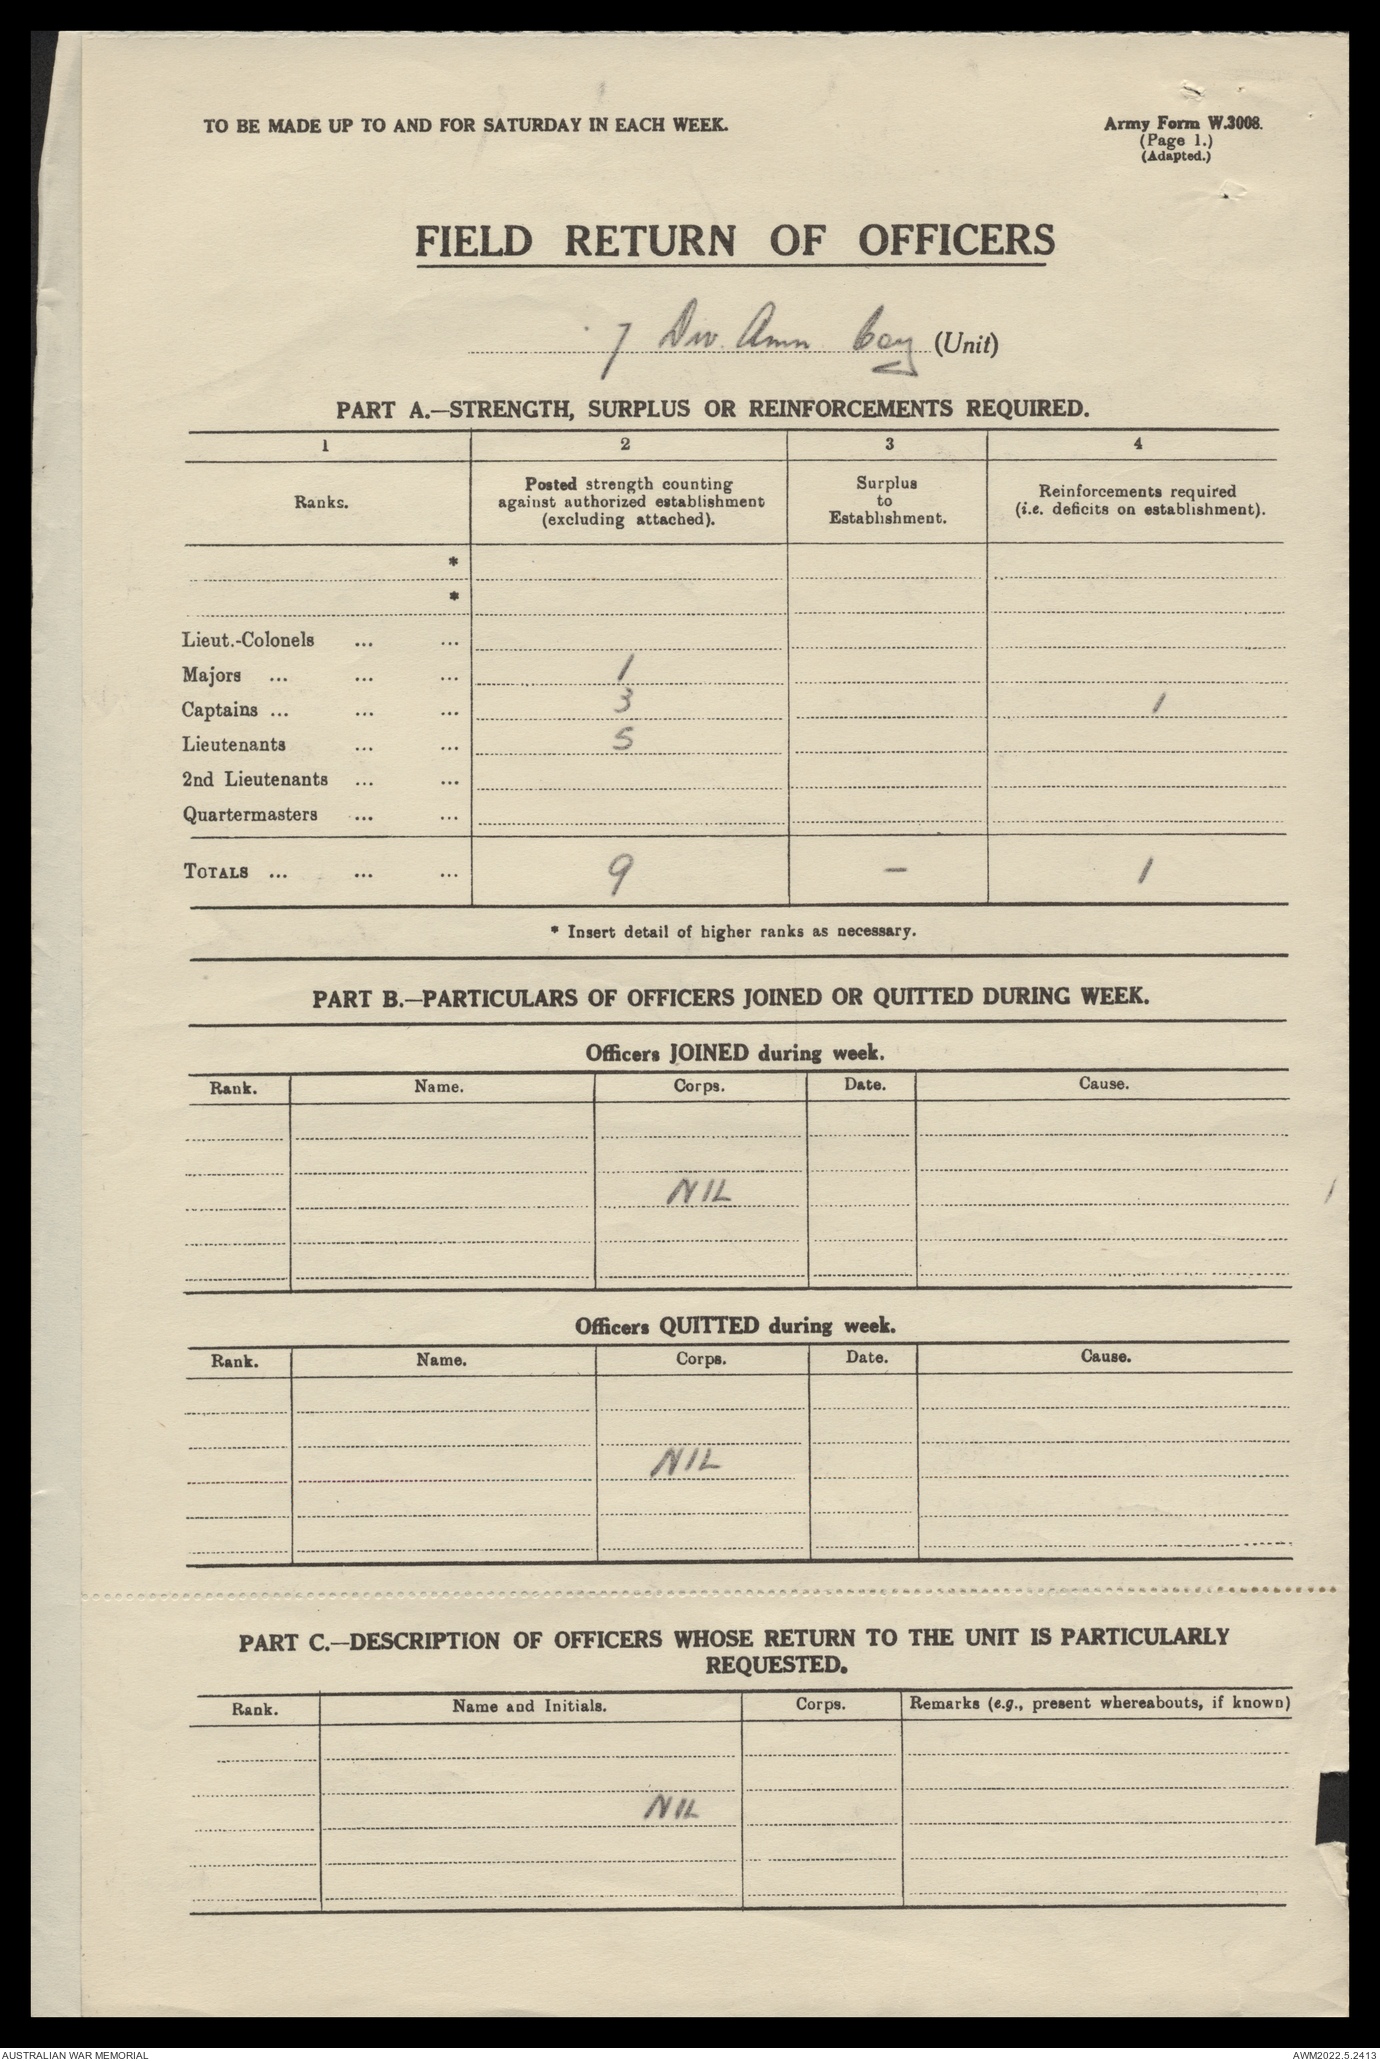 TO BE MADE UP TO AND FOR SATURDAY IN EACH WEEK.
Army Form W.3008.
(Page 1.)
(Adapted.)
FIELD RETURN OF OFFICERS
7 Div. Amn Coy (Unit)
PART A.—STRENGTH, SURPLUS OR REINFORCEMENTS REQUIRED.
1 2 3 4
Ranks.
Posted strength counting
against authorized establishment
(excluding attached).
Surplus
to
Establishment.
Reinforcements required
(i.e. deficits on establishment).
*
*
Lieut.-Colonels ... ...
Majors ... ... ... 1
Captains ... ... ... 3 1
Lieutenants ... ... 5
2nd Lieutenants ... ...
Quartermasters ... ...
TOTALS ... ... ... 9 – 1
* Insert detail of higher ranks as necessary.
PART B.—PARTICULARS OF OFFICERS JOINED OR QUITTED DURING WEEK.
Officers JOINED during week.
Rank. Name. Corps. Date. Cause.
NIL
Officers QUITTED during week.
Rank. Name. Corps. Date. Cause.
NIL
PART C.—DESCRIPTION OF OFFICERS WHOSE RETURN TO THE UNIT IS PARTICULARLY
REQUESTED.
Rank. Name and Initials. Corps. Remarks (e.g., present whereabouts, if known)
NIL
AUSTRALIAN WAR MEMORIAL
AWM2022.5.2413